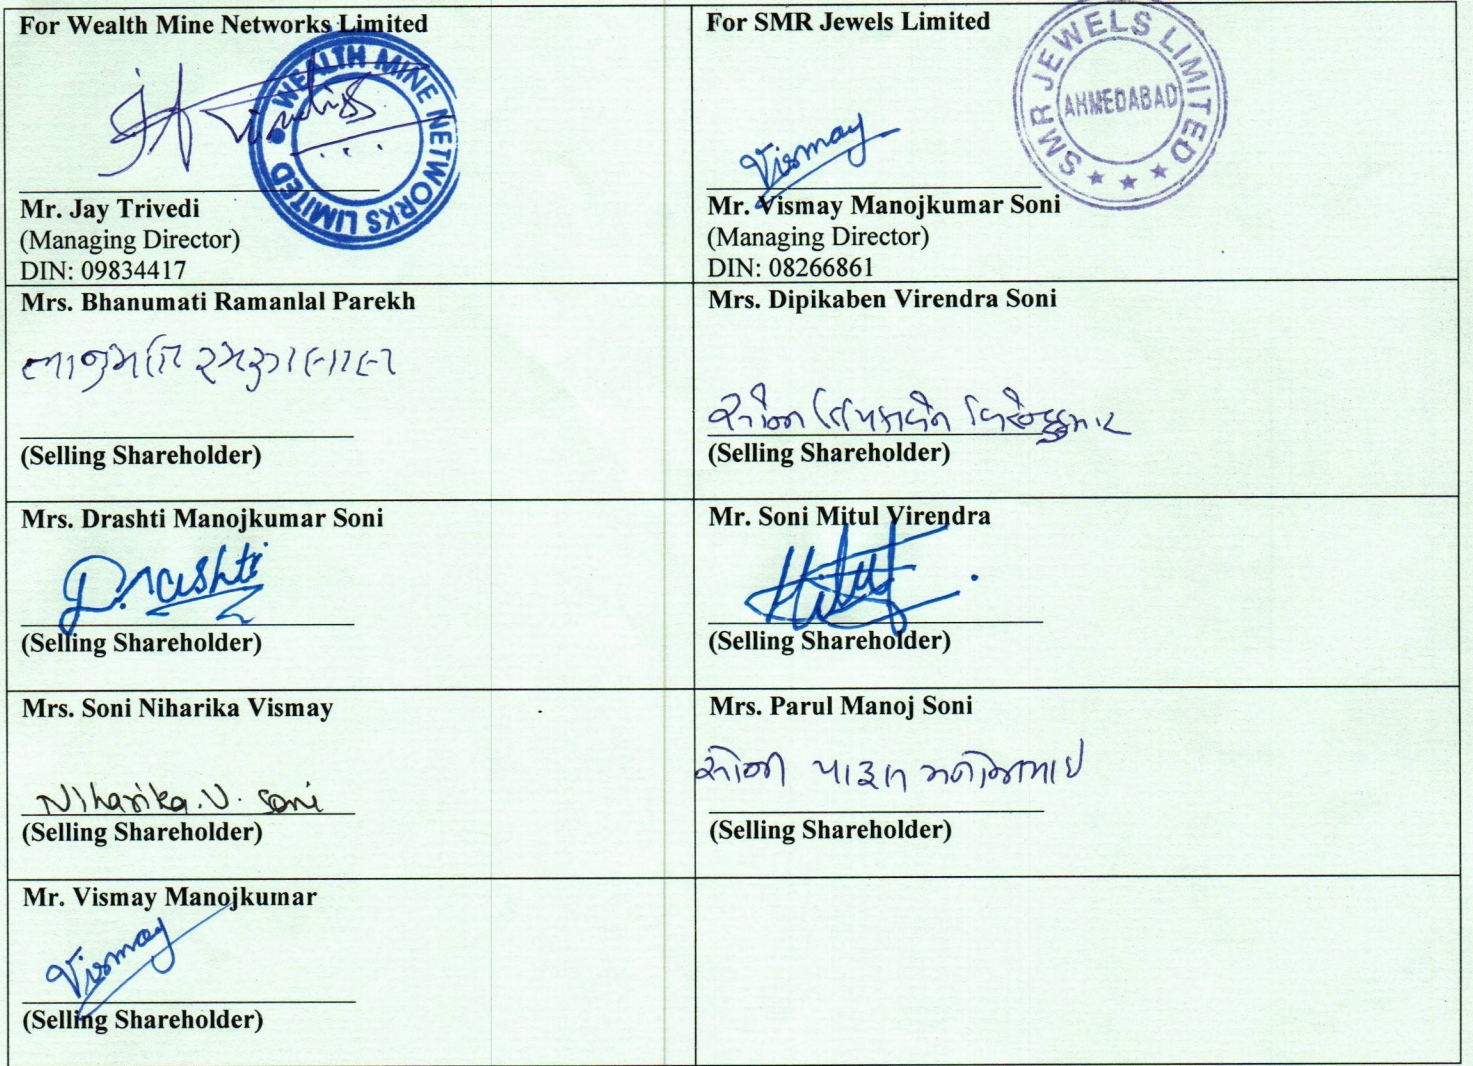 For Wealth Mine Networks Limited
WEALTH MINE NETWORKS LIMITED
Mr. Jay Trivedi
(Managing Director)
DIN: 09834417
For SMR Jewels Limited
SMR JEWELS LIMITED
AHMEDABAD
Vismay
Mr. Vismay Manojkumar Soni
(Managing Director)
DIN: 08266861
Mrs. Bhanumati Ramanlal Parekh
ભાનુમતિ રમણલાલ
(Selling Shareholder)
Mrs. Dipikaben Virendra Soni
સોની દિપીકાબેન વિરેન્દ્રકુમાર
(Selling Shareholder)
Mrs. Drashti Manojkumar Soni
Drashti
(Selling Shareholder)
Mr. Soni Mitul Virendra
(Selling Shareholder)
Mrs. Soni Niharika Vismay
Niharika.V. Soni
(Selling Shareholder)
Mrs. Parul Manoj Soni
સોની પારૂલ મનોજભાઈ
(Selling Shareholder)
Mr. Vismay Manojkumar
Vismay
(Selling Shareholder)